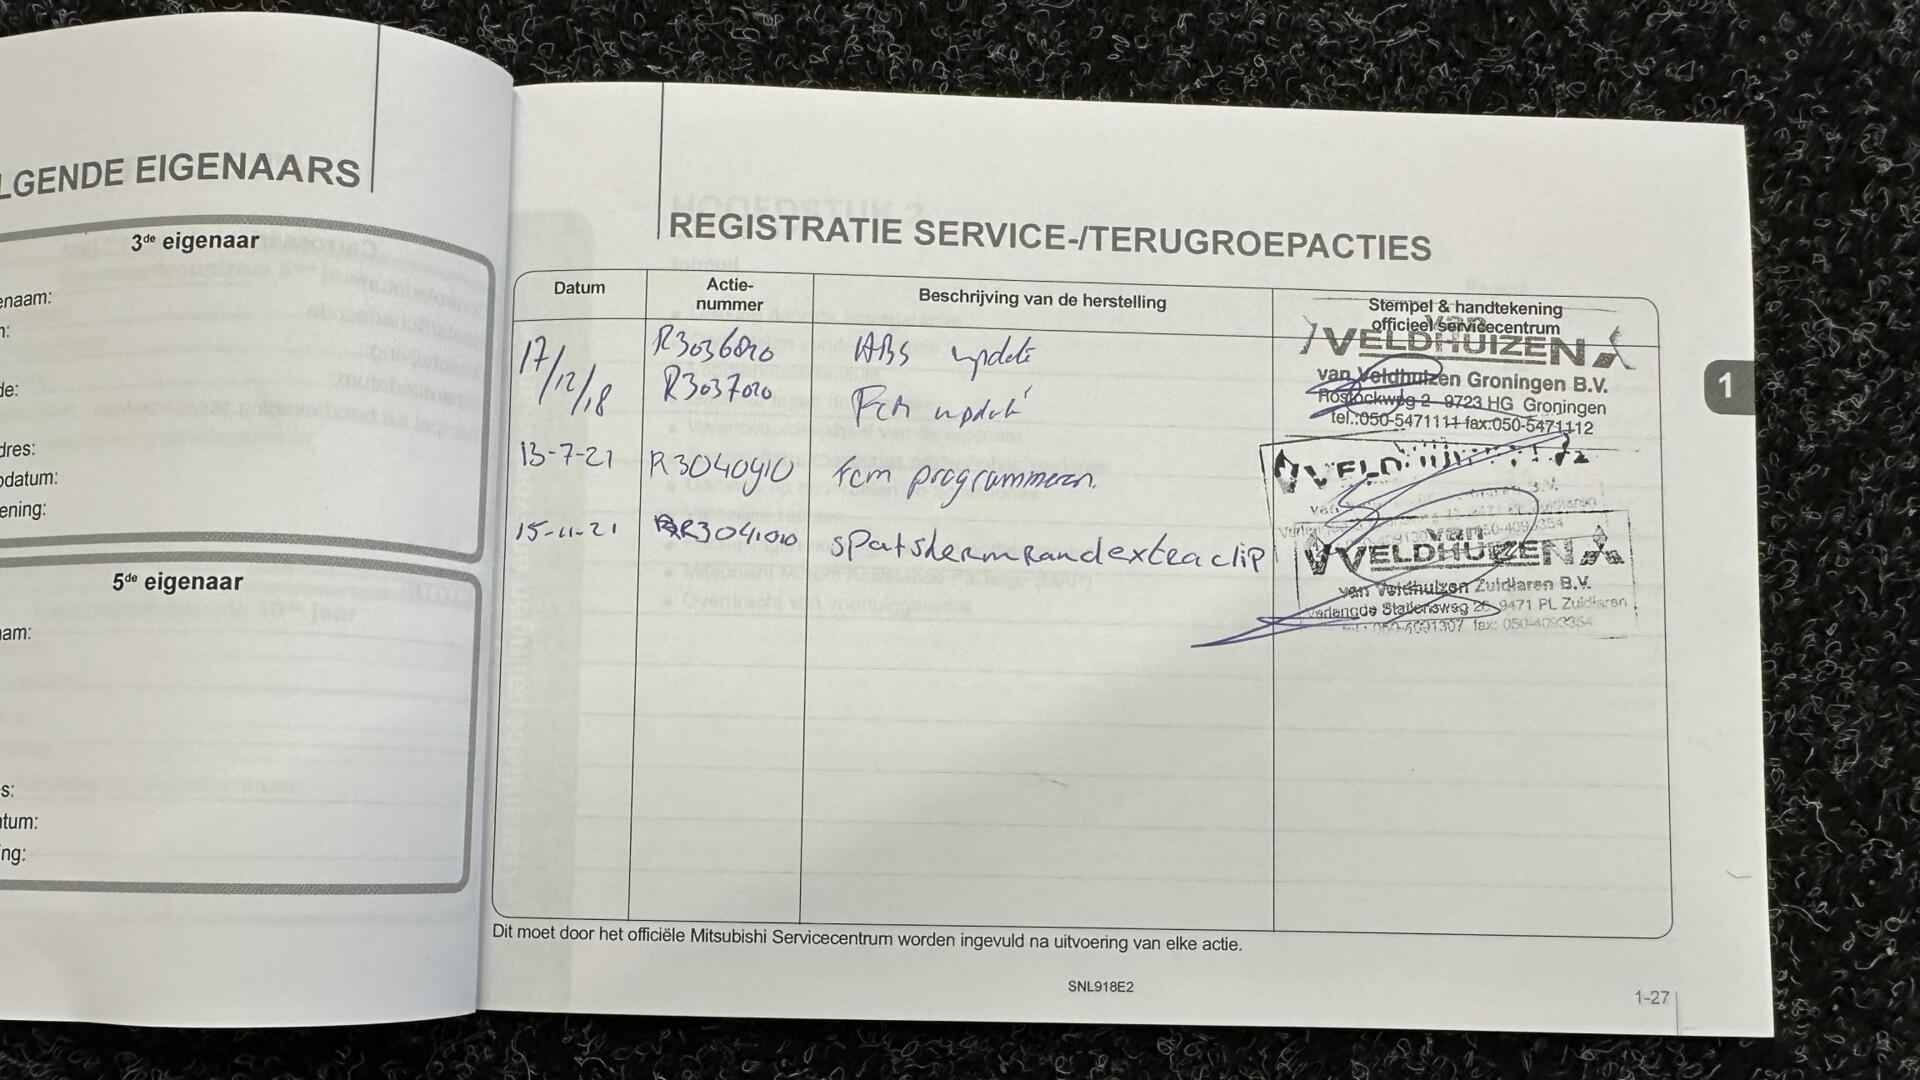 LGENDE EIGENAARS
3de eigenaar
enaam:
de:
dres:
odatum:
ening:
5de eigenaar
am:
s:
tum:
ng:
REGISTRATIE SERVICE-/TERUGROEPACTIES
Datum
Actie-
nummer
Beschrijving van de herstelling
Stempel & handtekening
officieel servicecentrum
17/12/18
R3036020 ABS update
R3037020 Fcm update
van
VELDHUIZEN
van Veldhuizen Groningen B.V.
Rostockweg 2 9723 HG Groningen
tel.:050-5471111 fax:050-5471112
13-7-21 R3040910 Fcm programmeren.
15-11-21 R3041010 spatshermrandextraclip
van
VELDHUIZEN
van Veldhuizen Zuidlaren B.V.
9471 PL Zuidlaren
fax: 050-4093354
1
Dit moet door het officiële Mitsubishi Servicecentrum worden ingevuld na uitvoering van elke actie.
SNL918E2
1-27